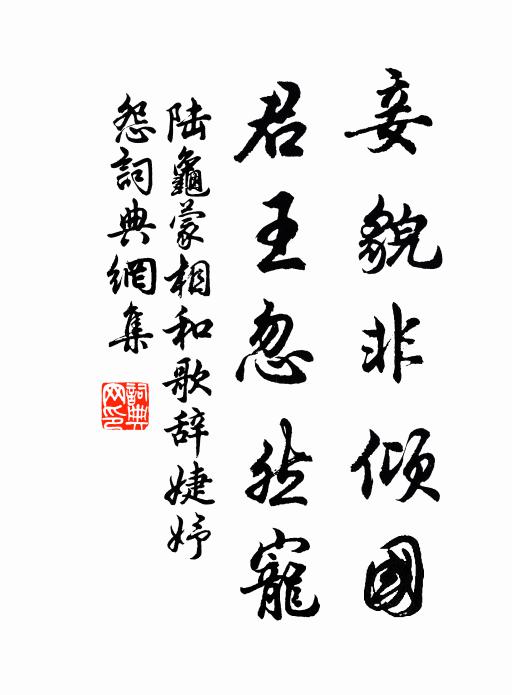 妾貌非倾國
君王忽然寵
陆龜蒙相和歌辞婕妤
怨詞典網集
詞典
网印